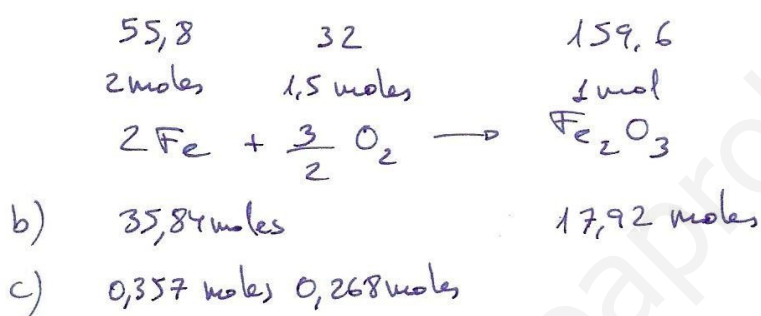 55,8 32 159,6
2 moles 1,5 moles 1 mol
2 Fe + 3/2 O₂ → Fe₂O₃
b) 35,84 moles 17,92 moles
c) 0,357 moles 0,268 moles